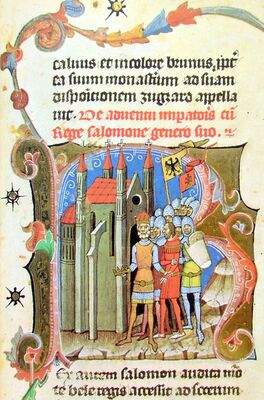 caluus et incolore brunus, ipt̄
ca suum monasterium ad suam
dispoicionem zugrard appella
uit. De aduentu imp̄atoris cū
Rege salomone genero suo.
Ex autem salomon audita mor
te bele regis accessit ad socerum